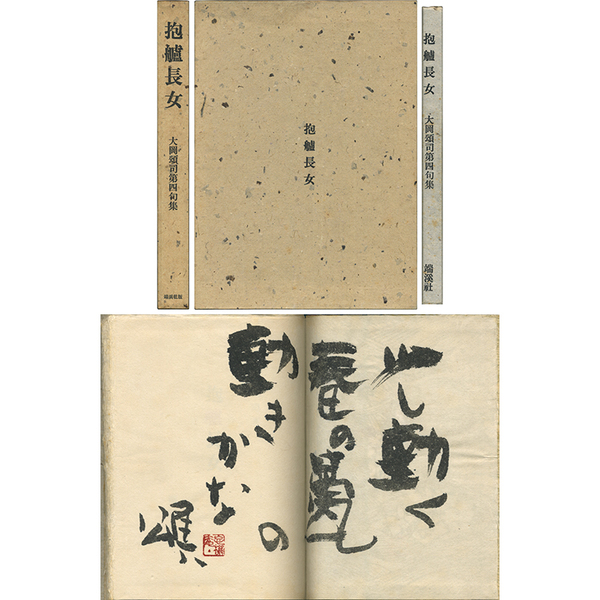 抱艫長女
大岡頌司第四句集
端溪社版
抱艫長女
抱艫長女
大岡頌司第四句集
端溪社
少し動く
春の甍
の
動きかな
頌